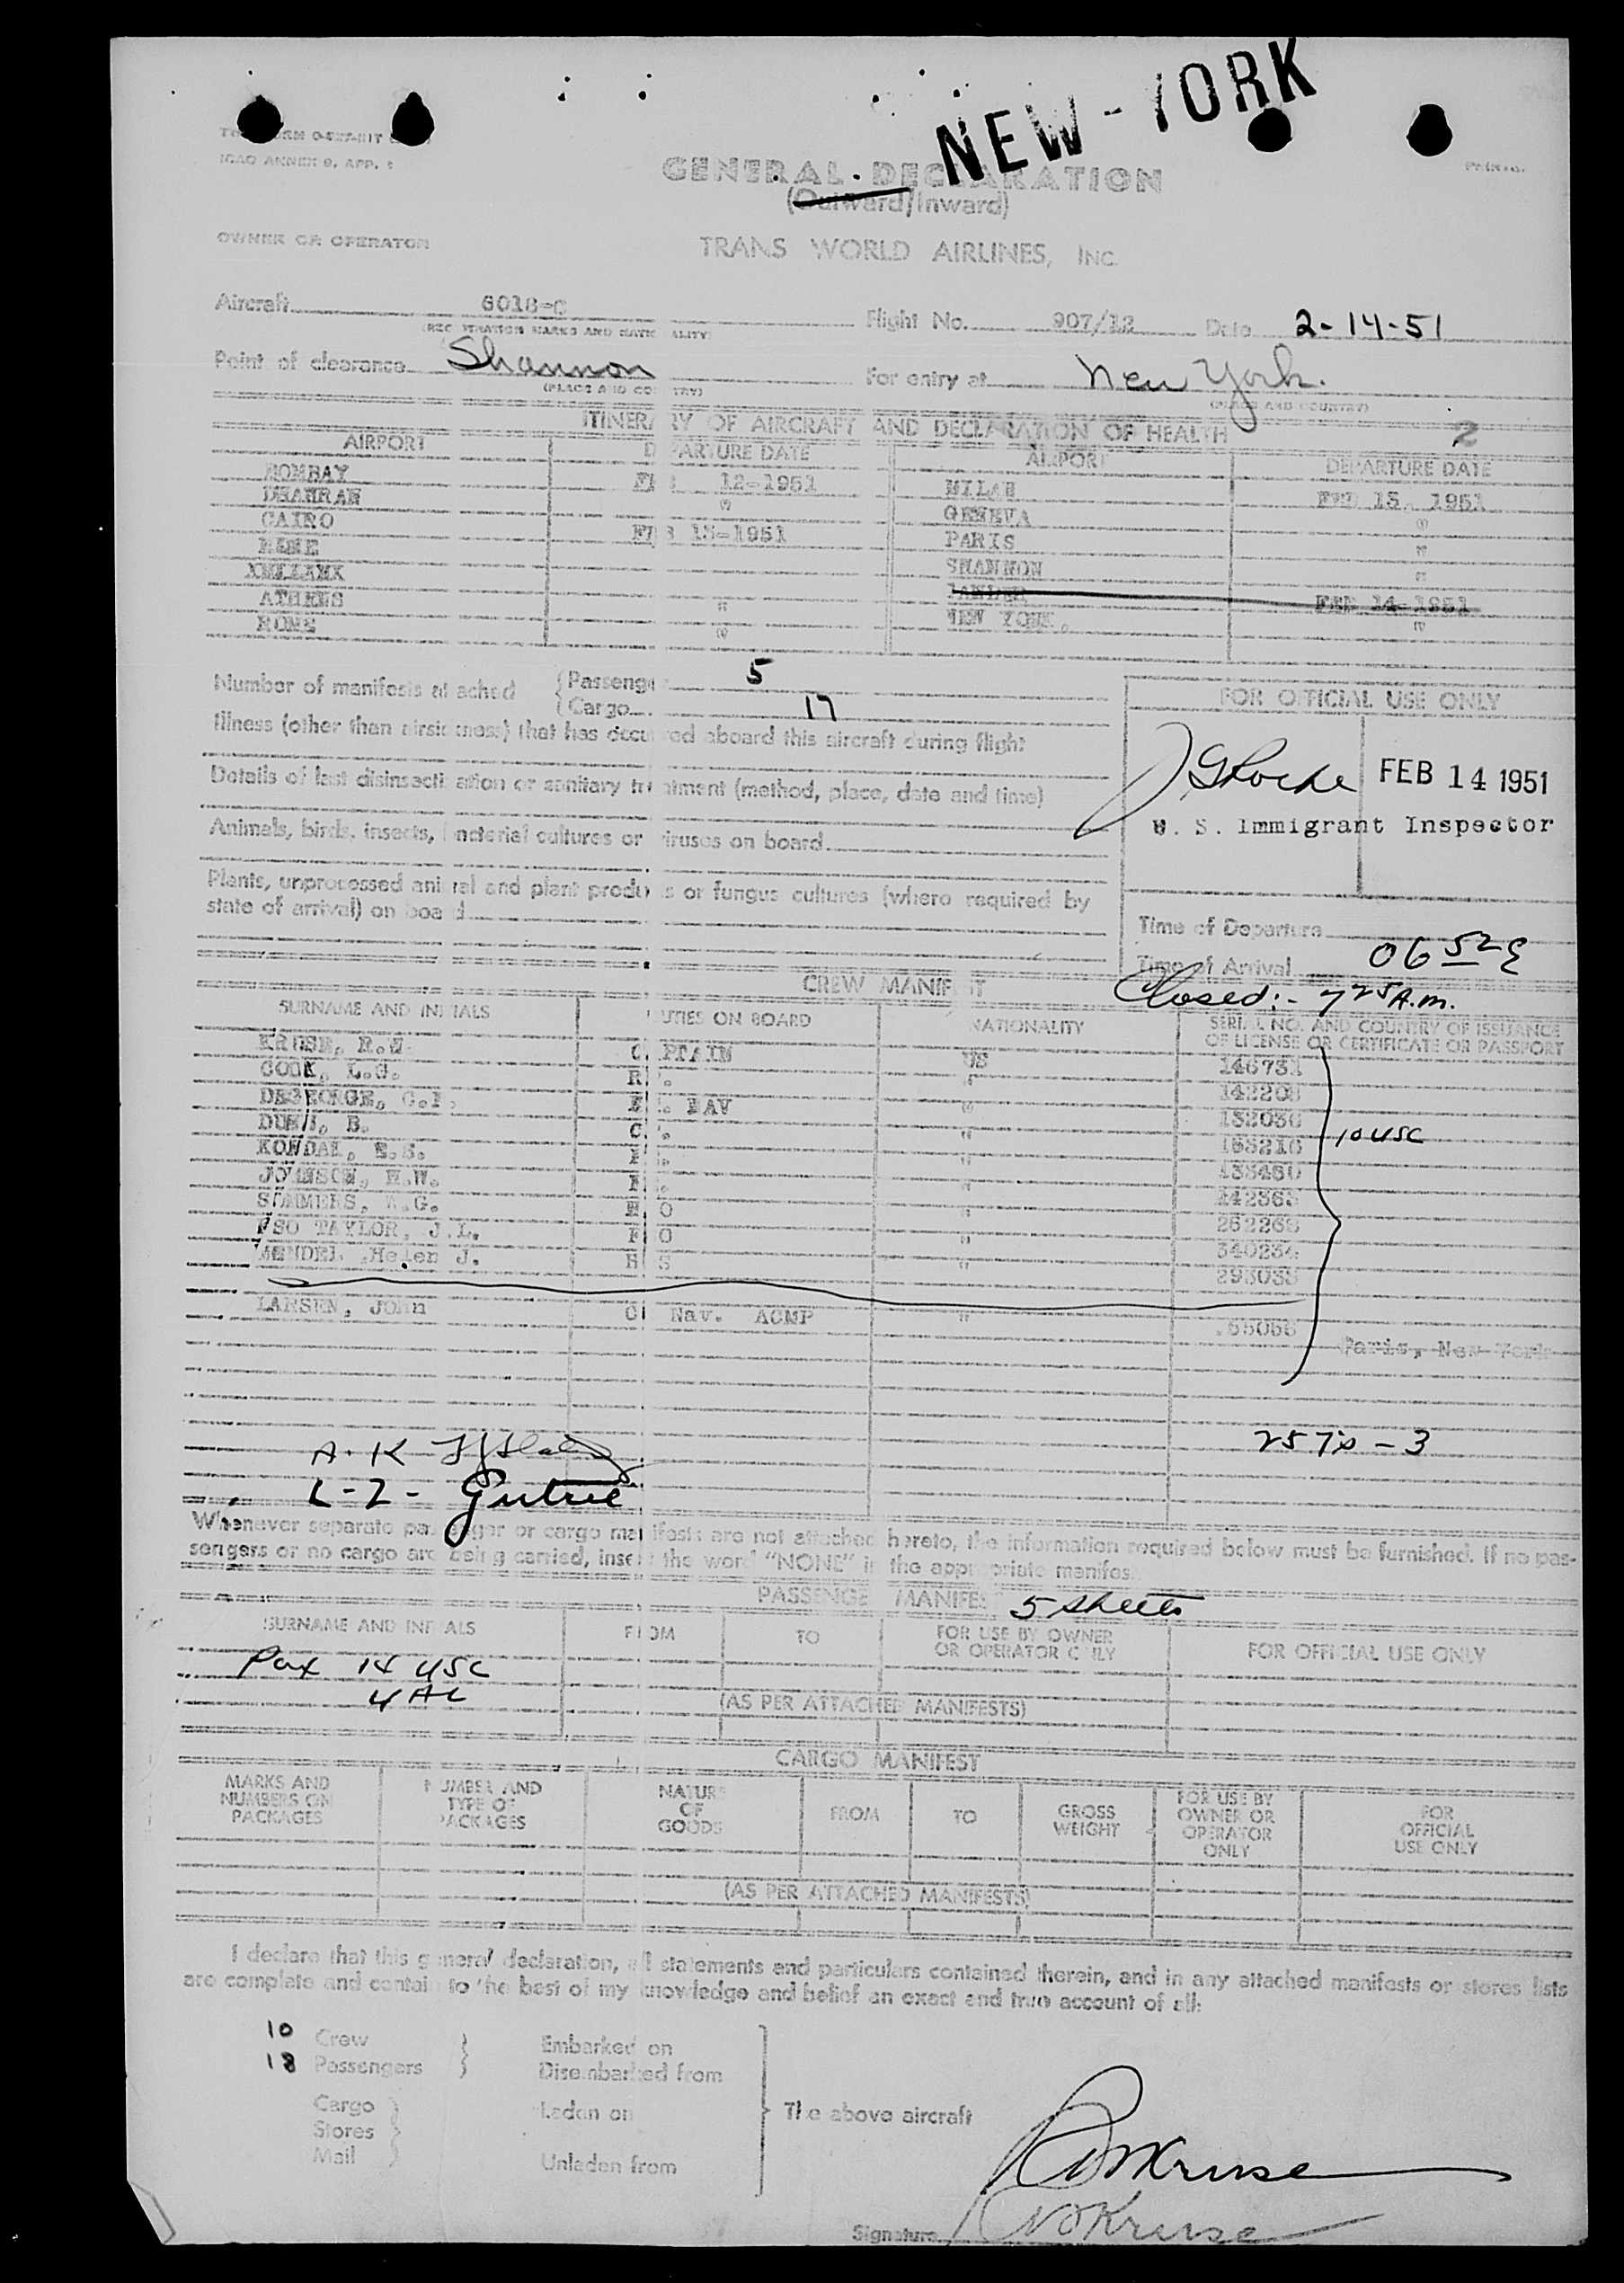 NEW-YORK
ICAO ANNEX 9, APP. 1
GENERAL DECLARATION
(Outward/Inward)
OWNER OR OPERATOR
TRANS WORLD AIRLINES, INC.
Aircraft 6018-C Flight No. 907/12 Date 2-14-51
(REGISTRATION MARKS AND NATIONALITY)
Point of clearance Shannon For entry at New York.
(PLACE AND COUNTRY) (PLACE AND COUNTRY)
ITINERARY OF AIRCRAFT AND DECLARATION OF HEALTH 2
AIRPORT DEPARTURE DATE AIRPORT DEPARTURE DATE
BOMBAY FEB 12-1951 MILAN FEB 13, 1951
DHAHRAN " GENEVA "
CAIRO FEB 13-1951 PARIS "
SHANNON "
ATHENS " FEB 14-1951
ROME " NEW YORK "
Number of manifests attached { Passenger 5
{ Cargo 17
FOR OFFICIAL USE ONLY
Illness (other than airsickness) that has occurred aboard this aircraft during flight
Details of last disinsectization or sanitary treatment (method, place, date and time)
FEB 14 1951
U. S. Immigrant Inspector
Animals, birds, insects, bacterial cultures or viruses on board
Plants, unprocessed animal and plant products or fungus cultures (where required by
state of arrival) on board
Time of Departure
Time of Arrival 0652 E
Closed:- 725 A.m.
CREW MANIFEST
SURNAME AND INITIALS DUTIES ON BOARD NATIONALITY SERIAL NO. AND COUNTRY OF ISSUANCE
OF LICENSE OR CERTIFICATE OR PASSPORT
KRUSE, R.N. CAPTAIN US
COOK, L.G. "
DEGEORGE, NAV "
10 USC
JOHNSON, "
SUMMERS, "
TAYLOR, J.L. "
MENDEL, Helen J. HS "
LARSEN, John Nav. ACMP "
Paris, New York
A-K
L-2- Gutrie
Whenever separate passenger or cargo manifests are not attached hereto, the information required below must be furnished. If no pas-
sengers or no cargo are being carried, insert the word "NONE" in the appropriate manifest.
PASSENGER MANIFEST 5 sheets
SURNAME AND INITIALS FROM TO FOR USE BY OWNER
OR OPERATOR ONLY FOR OFFICIAL USE ONLY
Pax 14 USC
4 AL
(AS PER ATTACHED MANIFESTS)
CARGO MANIFEST
MARKS AND
NUMBERS ON
PACKAGES
NUMBER AND
TYPE OF
PACKAGES
NATURE
OF
GOODS
FROM
TO
GROSS
WEIGHT
FOR USE BY
OWNER OR
OPERATOR
ONLY
FOR
OFFICIAL
USE ONLY
(AS PER ATTACHED MANIFESTS)
I declare that this general declaration, all statements and particulars contained therein, and in any attached manifests or stores lists
are complete and contain to the best of my knowledge and belief an exact and true account of all:
10 Crew } Embarked on
18 Passengers } Disembarked from
Cargo } Laden on } The above aircraft
Stores
Mail } Unladen from
Kruse
Signature Kruse